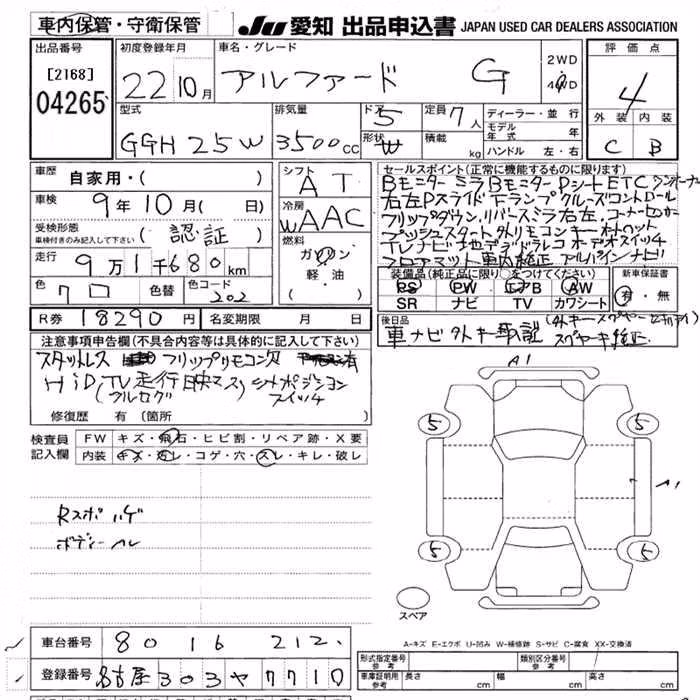 車内保管・守衛保管
JU 愛知 出品申込書 JAPAN USED CAR DEALERS ASSOCIATION
出品番号
[2168]
04265
初度登録年月
22年10月
車名・グレード
アルファード G
2WD
4WD
評価点
4
外装 内装
C B
型式
GGH25W
排気量
3500cc
ドア
5
形状
W
定員 7人
積載 kg
ディーラー・並行
モデル年式 年
ハンドル 左・右
車歴 自家用・( )
車検 9年10月( 日)
受検形態
車検付きのみ記入して下さい
(認証)
走行 9万1千680km
色 クロ 色替 色コード 202
R券 18290円 名変期限 月 日
シフト
AT
冷房
WAAC
燃料
ガソリン
軽・油
セールスポイント(正常に機能するものに限ります)
Bモニター ミラBモニター Dシート ETC ワンオーナー
右左Pスライド Fランプ クルーズコントロール
フリップダウン, リバースミラ右左, コーナーセンサー
プッシュスタート
フロアマット 車内純正 アルパインナビ
装備品(純正品に限り○をつけてください)
PS PW エアB AW
SR ナビ TV カワシート
新車保証書
有・無
後日品
車ナビ 外キー 取説
スペヤーキ純正
注意事項申告欄(不具合内容等は具体的に記入して下さい)
スタットレス フリップリモコン欠
HiD (TV走行映マス)
(フルセグ) スイッチ
修復歴 有(箇所
検査員記入欄
FW キズ・飛石・ヒビ割・リペア跡・X要
内装 キズ・汚レ・コゲ・穴・スレ・キレ・破レ
Rスポハゲ
ボディーヘレ
A1
5 5
A1
5 5
スペア
A-キズ E-エクボ U-凹み W-補修跡 S-サビ C-腐食 XX-交換済
車台番号 8016212
登録番号 名古屋303ヤ7710
形式指定番号
参考
類別区分番号
参考
車庫証明用
参考
長さ cm 幅 cm 高さ cm